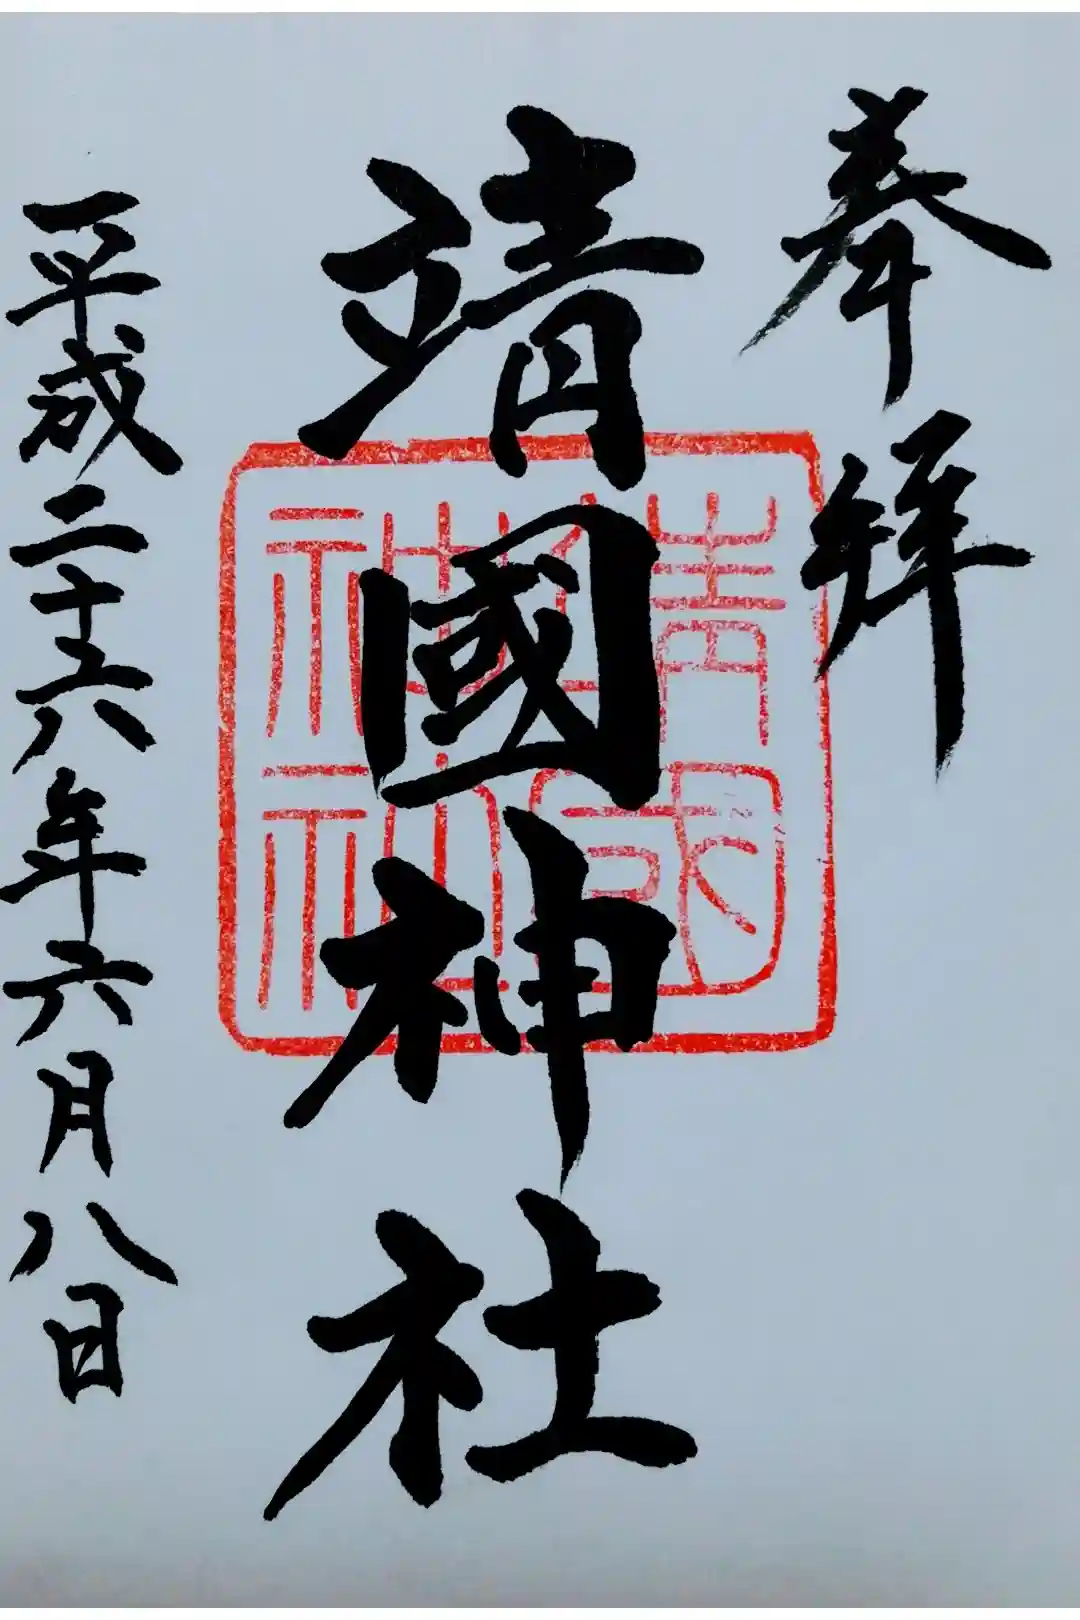 奉拜
靖國神社
平成二十六年六月八日
靖國
神社